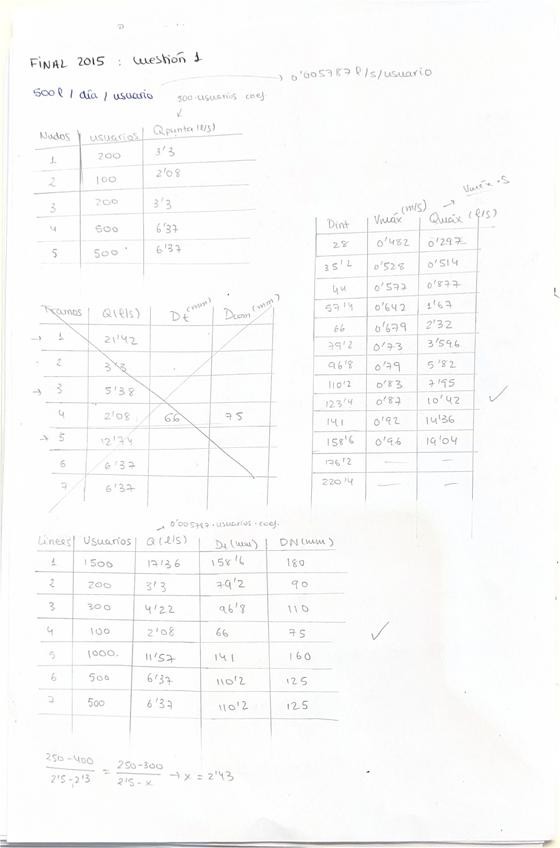 FINAL 2015 : Cuestión 1
→ 0'005787 l/s/usuario
500 l / día / usuario
500·usuarios·coef.
Nudos usuarios Qpunta (l/s)
1 200 3'3
2 100 2'08
3 200 3'3
4 500 6'37
5 500 6'37
Vmáx · S
Dint Vmáx (m/s) Qmáx (l/s)
28 0'482 0'297
35'2 0'528 0'514
44 0'577 0'877
57'4 0'642 1'67
66 0'679 2'32
79'2 0'73 3'596
96'8 0'79 5'82
110'2 0'83 7'95
123'4 0'87 10'42
141 0'92 14'36
158'6 0'96 19'04
176'2 — —
220'4 — —
Tramos Q(l/s) Dt (mm) Dcom (mm)
→ 1 21'42
2 3'3
→ 3 5'38
4 2'08 66 75
→ 5 12'74
6 6'37
7 6'37
→ 0'005787·usuarios·coef.
Líneas Usuarios Q (l/s) Dt (mm) DN (mm)
1 1500 17'36 158'6 180
2 200 3'3 79'2 90
3 300 4'22 96'8 110
4 100 2'08 66 75
5 1000 11'57 141 160
6 500 6'37 110'2 125
7 500 6'37 110'2 125
250-400 / 2'5-2'3 = 250-300 / 2'5-x → x = 2'43